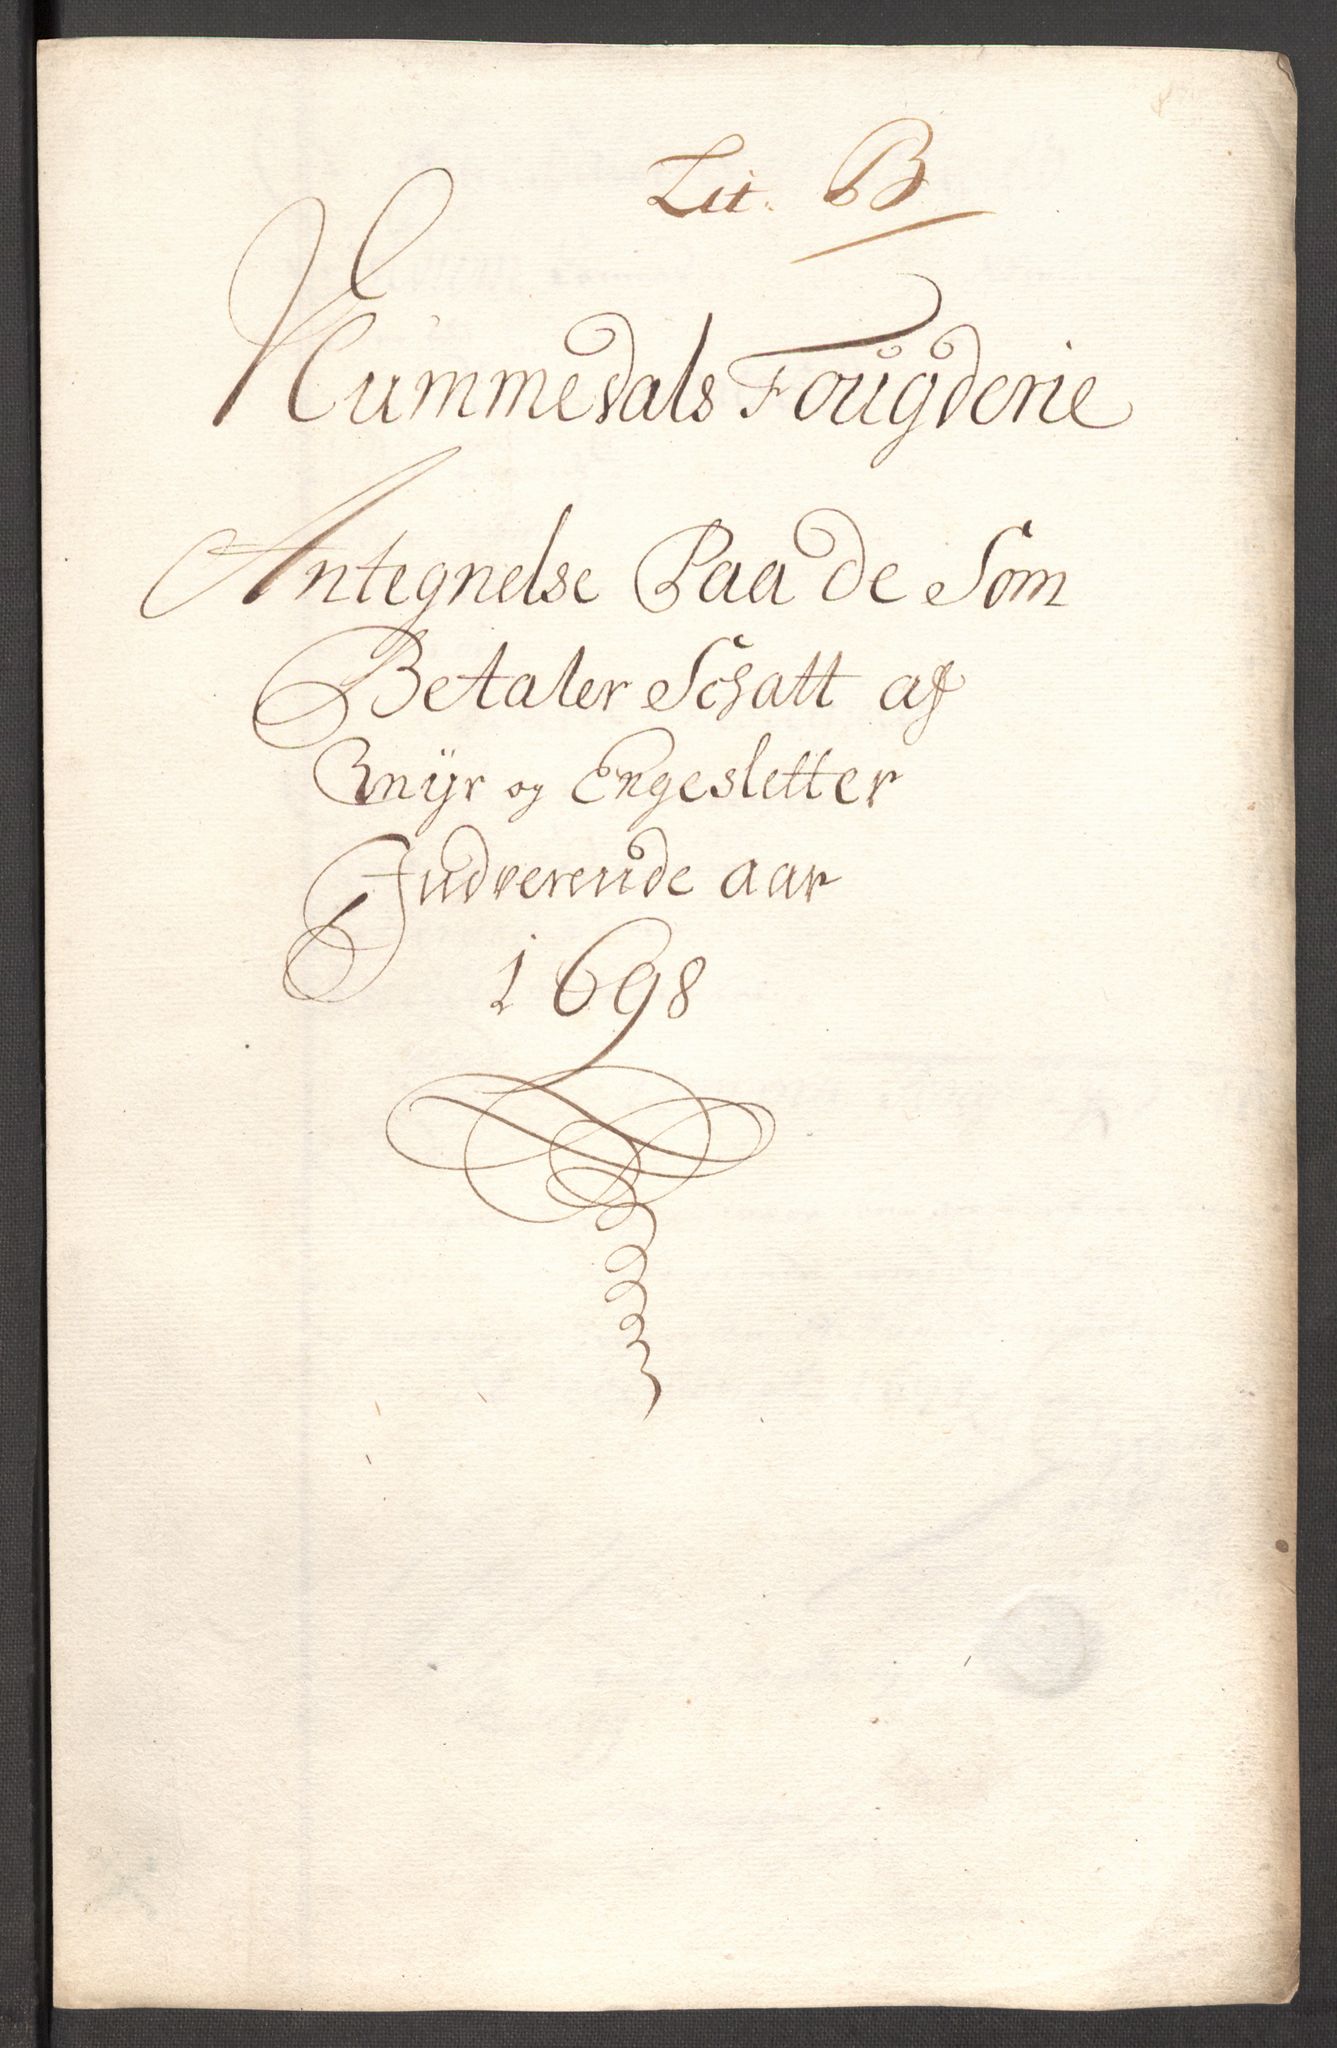 Lit. B
Nummedals Fougderie
Antegnelse Paa de Som
Betaler Schatt af
Rnijr og Engesletter
Indverende aar
1698